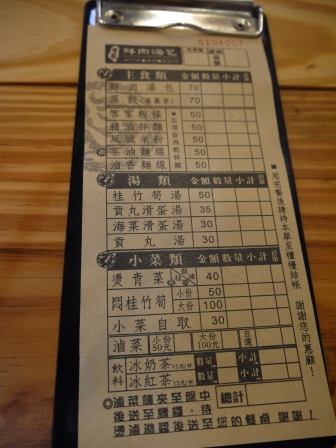 鮮肉湯包
5104007
主食類 金額 數量 小計
鮮肉湯包 70
蒸餃 70
客家板條 50
豬油拌麵 50
風城米粉 50
茶油麵線 50
滷香麵線 50
湯類 金額 數量 小計
桂竹筍湯 50
貢丸滑蛋湯 35
海菜滑蛋湯 30
貢丸湯 30
小菜類 金額 數量 小計
燙青菜 40
悶桂竹筍 小份 50
大份 100
小菜自取 30
滷菜 小份50元 大份100元 自選
飲料 冰奶茶 15元/杯 數量 小計
冰紅茶 15元/杯 數量 小計
◎滷菜請夾至盤中 總計
後送至櫃檯,待
燙滷淋醬後送至您的餐桌 謝謝!
■用完餐後請持本單至櫃檯結帳
謝謝您的惠顧!